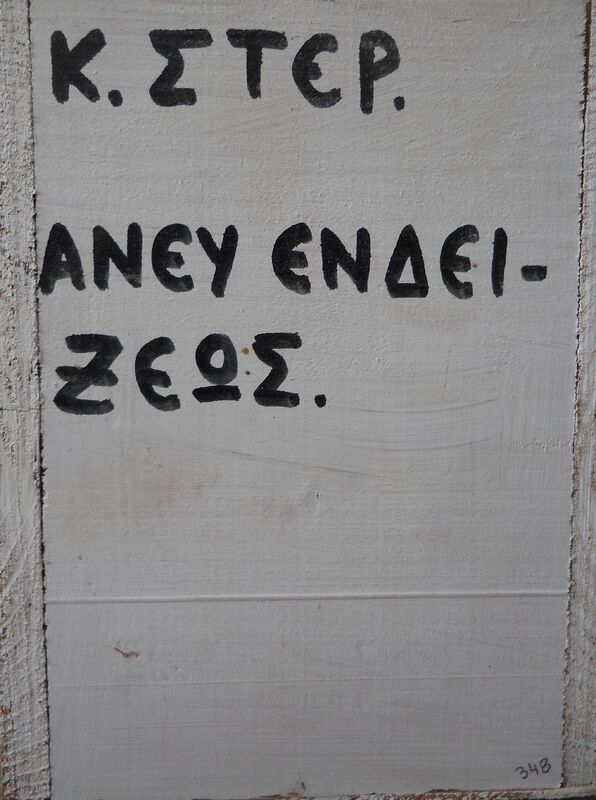 Κ. ΣΤΕΡ.
ΑΝΕΥ ΕΝΔΕΙ-
ΞΕΩΣ.
348